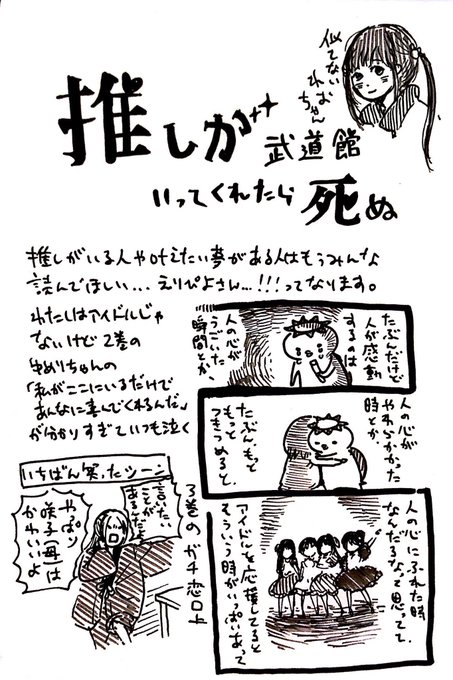 推しが武道館
いってくれたら死ぬ
似てない
れおちゃん
推しがいる人や叶えたい夢がある人はもうみんな
読んでほしい…えりぴよさん…!!!ってなります。
わたしはアイドルじゃ
ないけど2巻の
ゆめりちゃんの
「私がここにいるだけで
あんなに喜んでくれるんだ」
が分かりすぎていつも泣く
たぶんだけど
人が感動
するのは
人の心が
うごいた
瞬間とか、
人の心が
やわらかかった
時とか
たぶん、もっと
もっと
つきつめると、
人の心にふれた時
なんだろなって思ってて、
アイドルを応援してると
そういう時がいっぱいあって
いちばん笑ったツーン
言いたい
ことが
あるんだよ
やっぱり
咲子(母)は
かわいいよ
3巻のガチ恋口上